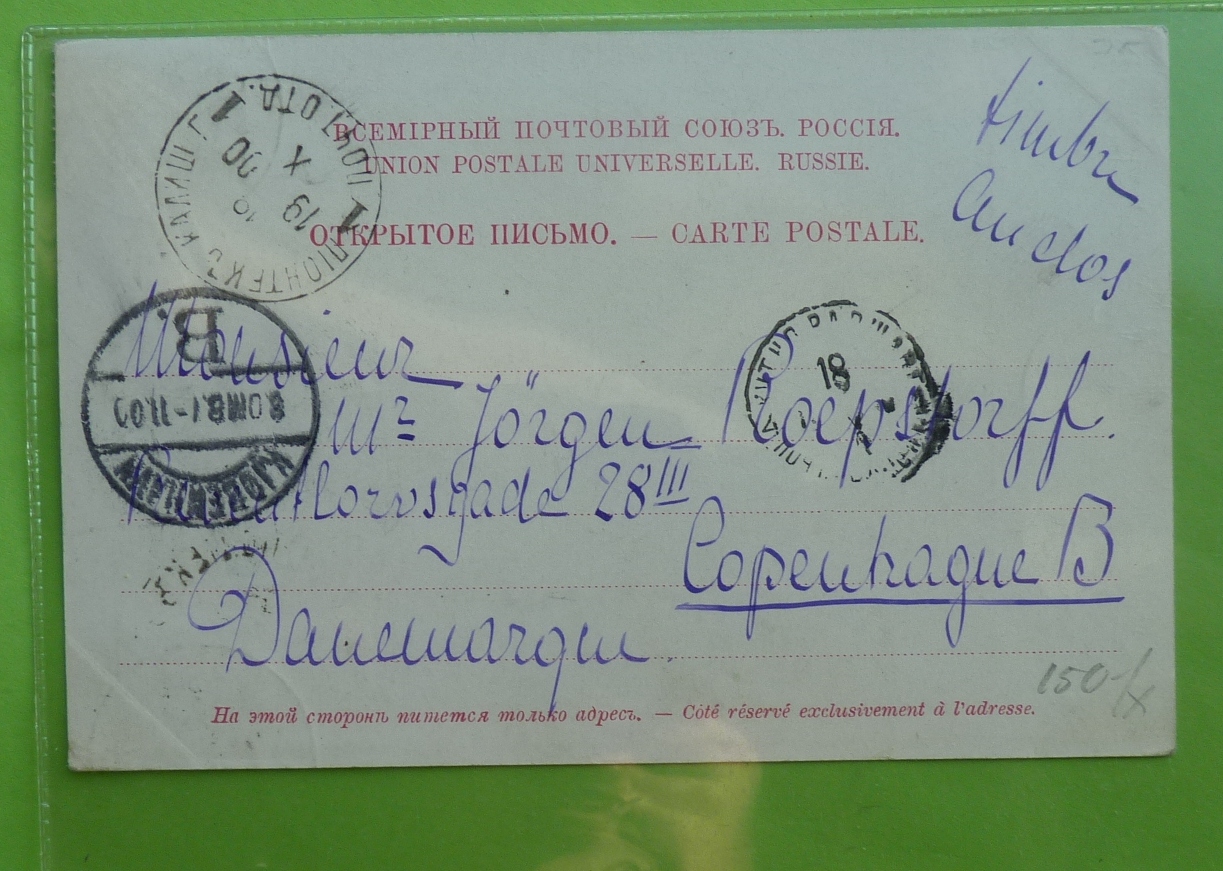 ВСЕМІРНЫЙ ПОЧТОВЫЙ СОЮЗЪ. РОССІЯ.
UNION POSTALE UNIVERSELLE. RUSSIE.
ОТКРЫТОЕ ПИСЬМО. — CARTE POSTALE.
timbre
au dos
ПІОНТЕКЪ КАЛИШ. Г.
1 ПОЧТ. ОТД. 1
19 X 00
B.
8.OMB. 1-11.00
KJØBENHAVN
18
Monsieur
Mr Jörgen Roepstorff.
28 III
Copenhague B
Danemarque.
На этой сторонѣ пишется только адресъ. — Côté réservé exclusivement à l'adresse.
150-/x